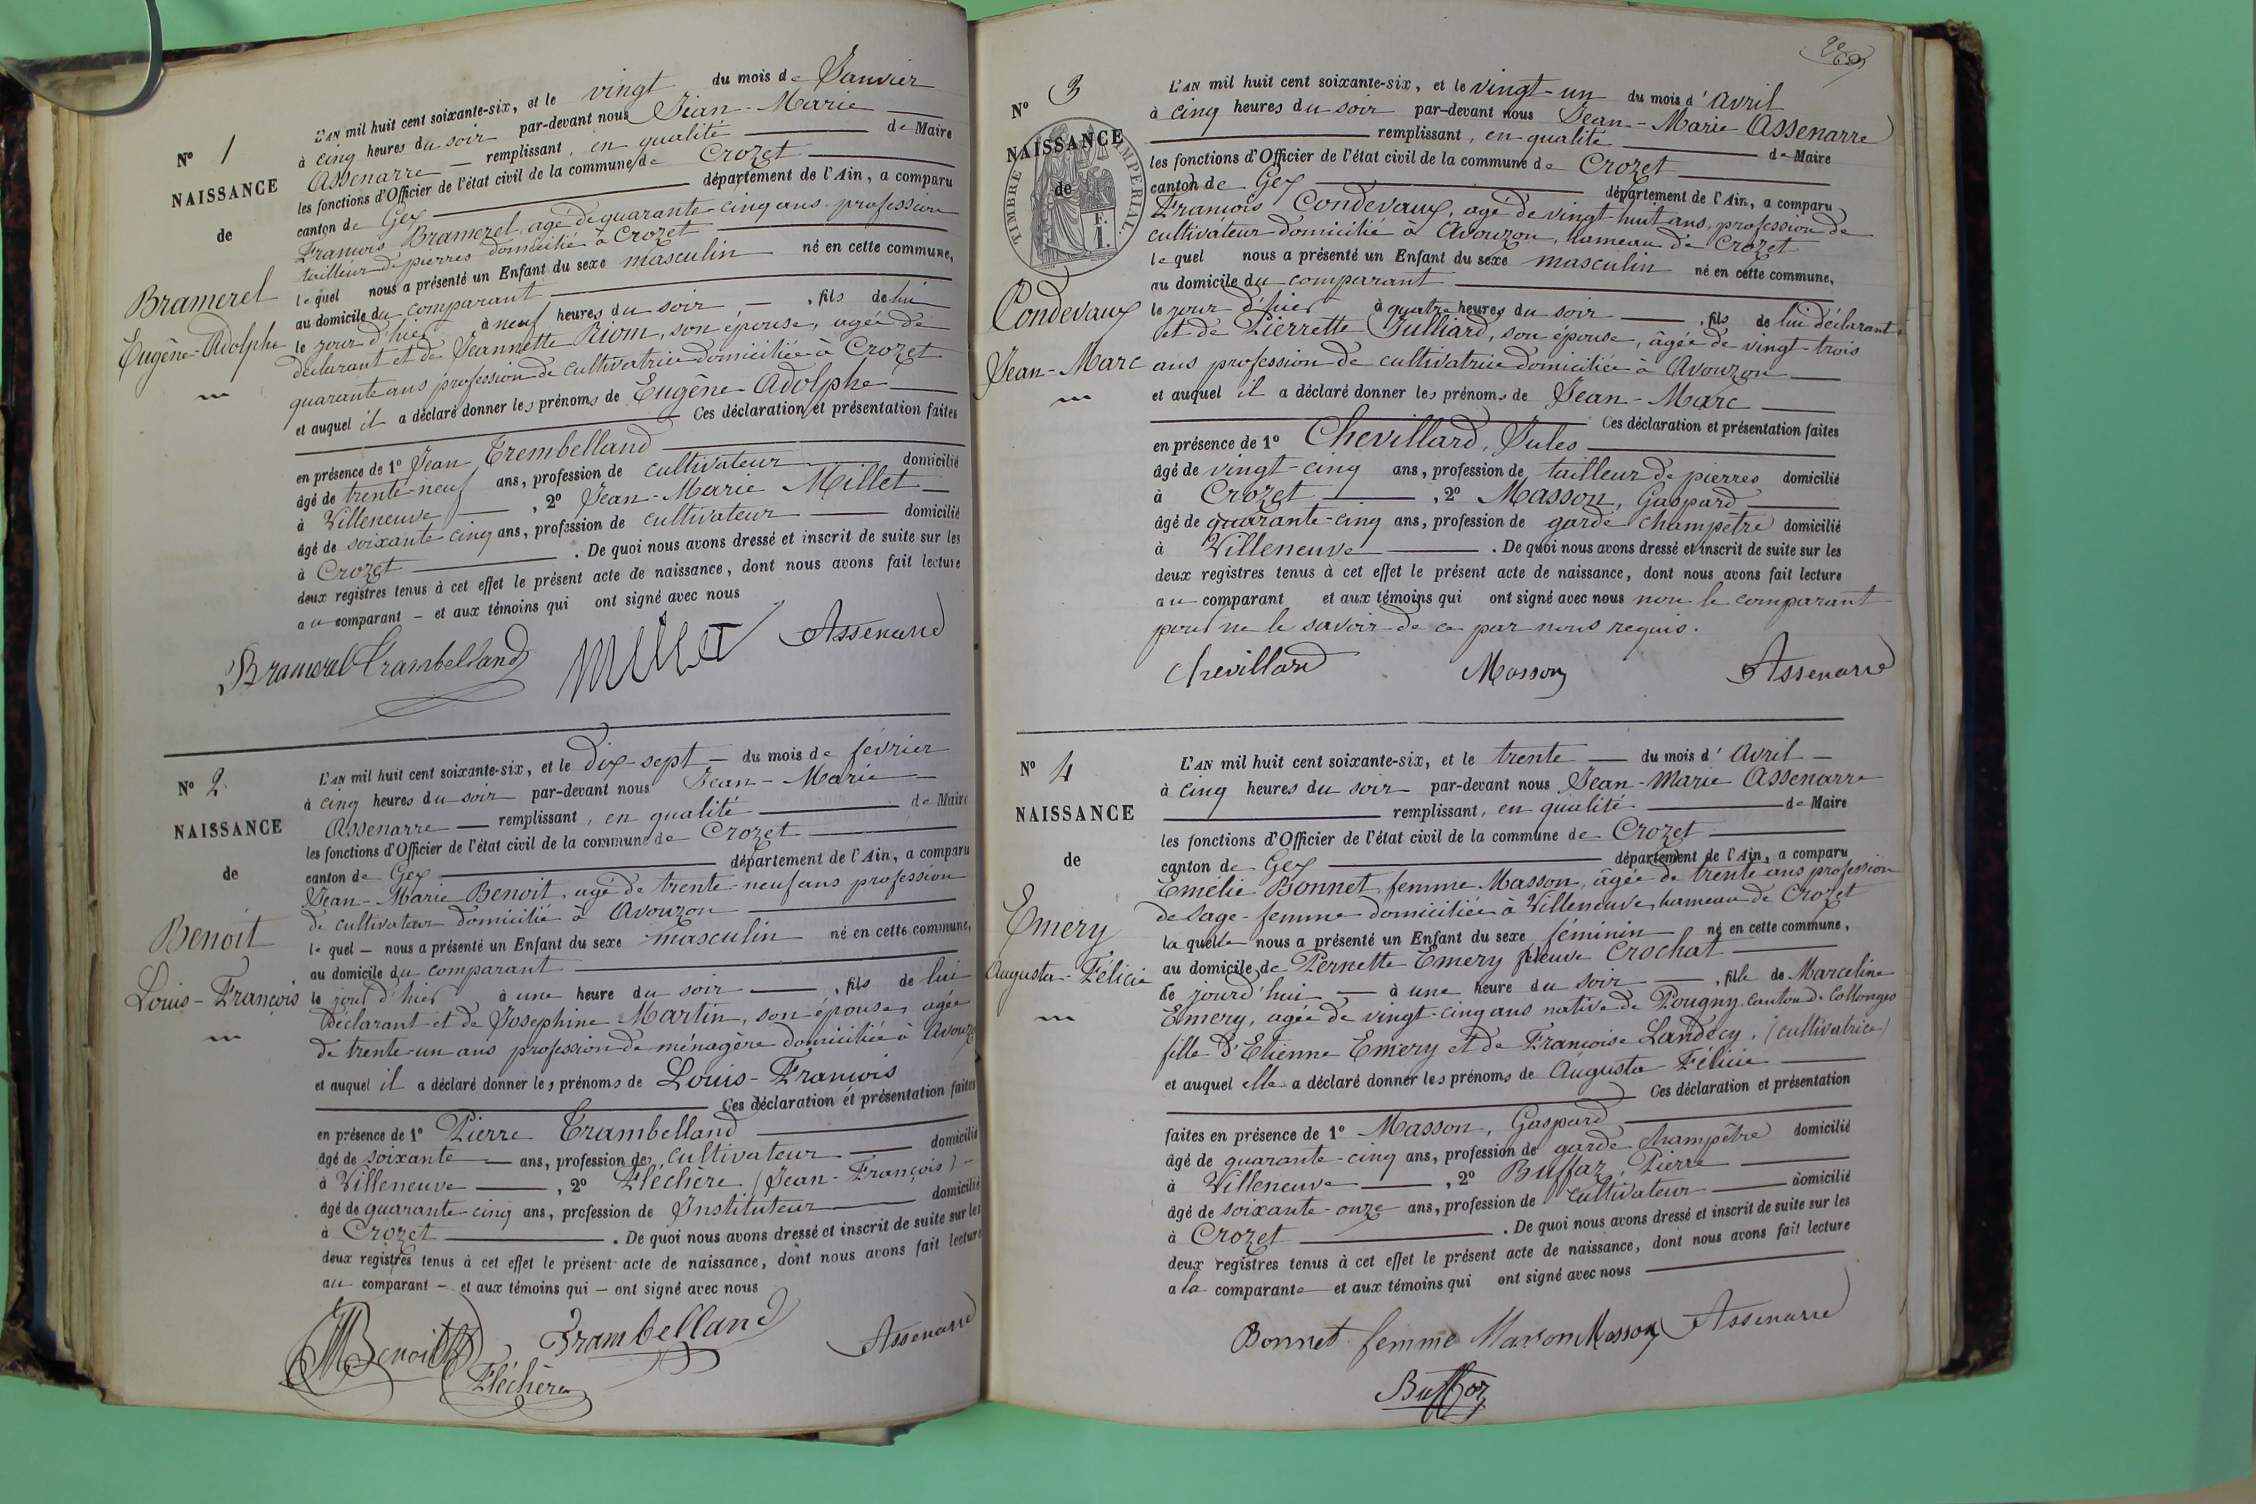 N° 1
NAISSANCE
de
Bramerel
Eugène-Adolphe
L'AN mil huit cent soixante-six, et le vingt du mois de Janvier
à cinq heures du soir par-devant nous Jean-Marie
Assenarre remplissant, en qualité de Maire
les fonctions d'Officier de l'état civil de la commune de Crozet
canton de Gex département de l'Ain, a comparu
François Bramerel, agé de quarante-cinq ans, profession
tailleur de pierres domicilié à Crozet
le quel nous a présenté un Enfant du sexe masculin né en cette commune,
au domicile du comparant
le jour d'hier à neuf heures du soir, fils de lui
déclarant et de Jeannette Riom, son épouse, agée de
quarante ans profession de cultivatrice domiciliée à Crozet
et auquel il a déclaré donner les prénoms de Eugène-Adolphe
Ces déclaration et présentation faites
en présence de 1° Jean Trembelland
âgé de trente-neuf ans, profession de cultivateur domicilié
à Villeneuve, 2° Jean-Marie Millet
âgé de soixante cinq ans, profession de cultivateur domicilié
à Crozet. De quoi nous avons dressé et inscrit de suite sur les
deux registres tenus à cet effet le présent acte de naissance, dont nous avons fait lecture
au comparant - et aux témoins qui ont signé avec nous
Bramerel Trambelland Millet Assenarre
N° 2
NAISSANCE
de
Benoit
Louis-François
L'AN mil huit cent soixante-six, et le dix-sept du mois de février
à cinq heures du soir par-devant nous Jean-Marie
Assenarre remplissant, en qualité de Maire
les fonctions d'Officier de l'état civil de la commune de Crozet
canton de Gex département de l'Ain, a comparu
Jean-Marie Benoit, agé de trente-neuf ans profession
de cultivateur domicilié à Avouzon
le quel - nous a présenté un Enfant du sexe masculin né en cette commune,
au domicile du comparant
le jour d'hier à une heure du soir, fils de lui
déclarant et de Josephine Martin, son épouse, agée
de trente-un ans profession de ménagère domiciliée à Avouzon
et auquel il a déclaré donner les prénoms de Louis-François
Ces déclaration et présentation faites
en présence de 1° Pierre Trambelland
âgé de soixante ans, profession de cultivateur domicilié
à Villeneuve, 2° Fléchère (Jean-François)
âgé de quarante cinq ans, profession de Instituteur domicilié
à Crozet. De quoi nous avons dressé et inscrit de suite sur les
deux registres tenus à cet effet le présent acte de naissance, dont nous avons fait lecture
au comparant - et aux témoins qui - ont signé avec nous
Benoit Trambelland Assenarre
Fléchère
N° 3
NAISSANCE
de
TIMBRE IMPERIAL
Condevaux
Jean-Marc
L'AN mil huit cent soixante-six, et le vingt-un du mois d'Avril
à cinq heures du soir par-devant nous Jean-Marie Assenarre
remplissant, en qualité de Maire
les fonctions d'Officier de l'état civil de la commune de Crozet
canton de Gex département de l'Ain, a comparu
François Condevaux, agé de vingt huit ans, profession de
cultivateur domicilié à Avouzon, hameau de Crozet
le quel nous a présenté un Enfant du sexe masculin né en cette commune,
au domicile du comparant
le jour d'hier à quatre heures du soir, fils de lui déclarant
et de Pierrette Julliard, son épouse, âgée de vingt-trois
ans profession de cultivatrice domiciliée à Avouzon
et auquel il a déclaré donner les prénoms de Jean-Marc
Ces déclaration et présentation faites
en présence de 1° Chevillard, Jules
âgé de vingt-cinq ans, profession de tailleur de pierres domicilié
à Crozet, 2° Masson, Gaspard
âgé de quarante-cinq ans, profession de garde champêtre domicilié
à Villeneuve. De quoi nous avons dressé et inscrit de suite sur les
deux registres tenus à cet effet le présent acte de naissance, dont nous avons fait lecture
au comparant et aux témoins qui ont signé avec nous non le comparant
pour ne le savoir de ce par nous requis.
Chevillard Masson Assenarre
N° 4
NAISSANCE
de
Emery
Augusta-Félicie
L'AN mil huit cent soixante-six, et le trente du mois d'Avril
à cinq heures du soir par-devant nous Jean-Marie Assenarre
remplissant, en qualité de Maire
les fonctions d'Officier de l'état civil de la commune de Crozet
canton de Gex département de l'Ain, a comparu
Emélie Bonnet femme Masson, âgée de trente ans profession
de sage-femme domiciliée à Villeneuve, hameau de Crozet
la quelle nous a présenté un Enfant du sexe féminin né en cette commune,
au domicile de Pernette Emery veuve Crochat
le jourd'hui à une heure du soir, fille de Marceline
Emery, agée de vingt-cinq ans native de Pougny canton de Collonges
fille d'Etienne Emery et de Françoise Landecy. (cultivatrice)
et auquel elle a déclaré donner les prénoms de Augusta-Félicie
Ces déclaration et présentation
faites en présence de 1° Masson, Gaspard
âgé de quarante-cinq ans, profession de garde champêtre domicilié
à Villeneuve, 2° Buffaz, Pierre
âgé de soixante-onze ans, profession de cultivateur domicilié
à Crozet. De quoi nous avons dressé et inscrit de suite sur les
deux registres tenus à cet effet le présent acte de naissance, dont nous avons fait lecture
a la comparante et aux témoins qui ont signé avec nous
Bonnet femme Masson Masson Assenarre
Buffaz